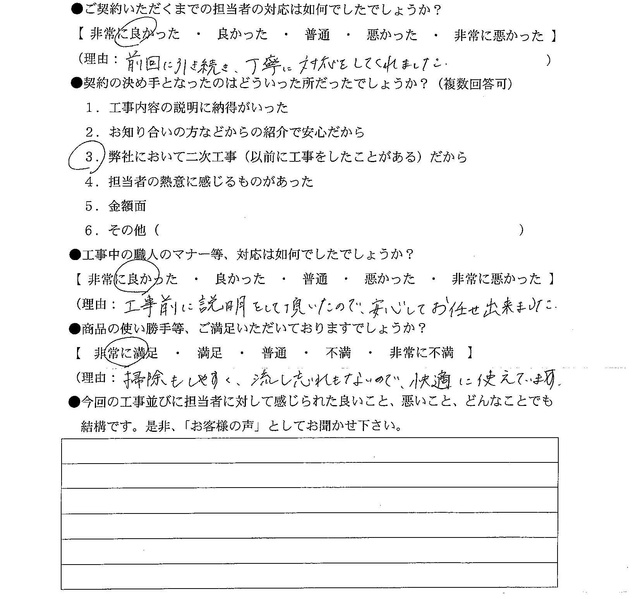 ●ご契約いただくまでの担当者の対応は如何でしたでしょうか？
【 非常に良かった ・ 良かった ・ 普通 ・ 悪かった ・ 非常に悪かった 】
（理由：前回に引き続き、丁寧に対応をしてくれました。 ）
●契約の決め手となったのはどういった所だったでしょうか？（複数回答可）
１．工事内容の説明に納得がいった
２．お知り合いの方などからの紹介で安心だから
３．弊社において二次工事（以前に工事をしたことがある）だから
４．担当者の熱意に感じるものがあった
５．金額面
６．その他（ ）
●工事中の職人のマナー等、対応は如何でしたでしょうか？
【 非常に良かった ・ 良かった ・ 普通 ・ 悪かった ・ 非常に悪かった 】
（理由：工事前に説明をして頂いたので、安心してお任せ出来ました。
●商品の使い勝手等、ご満足いただいておりますでしょうか？
【 非常に満足 ・ 満足 ・ 普通 ・ 不満 ・ 非常に不満 】
（理由：掃除もしやすく、流し忘れもないので、快適に使えています。
●今回の工事並びに担当者に対して感じられた良いこと、悪いこと、どんなことでも
結構です。是非、「お客様の声」としてお聞かせ下さい。